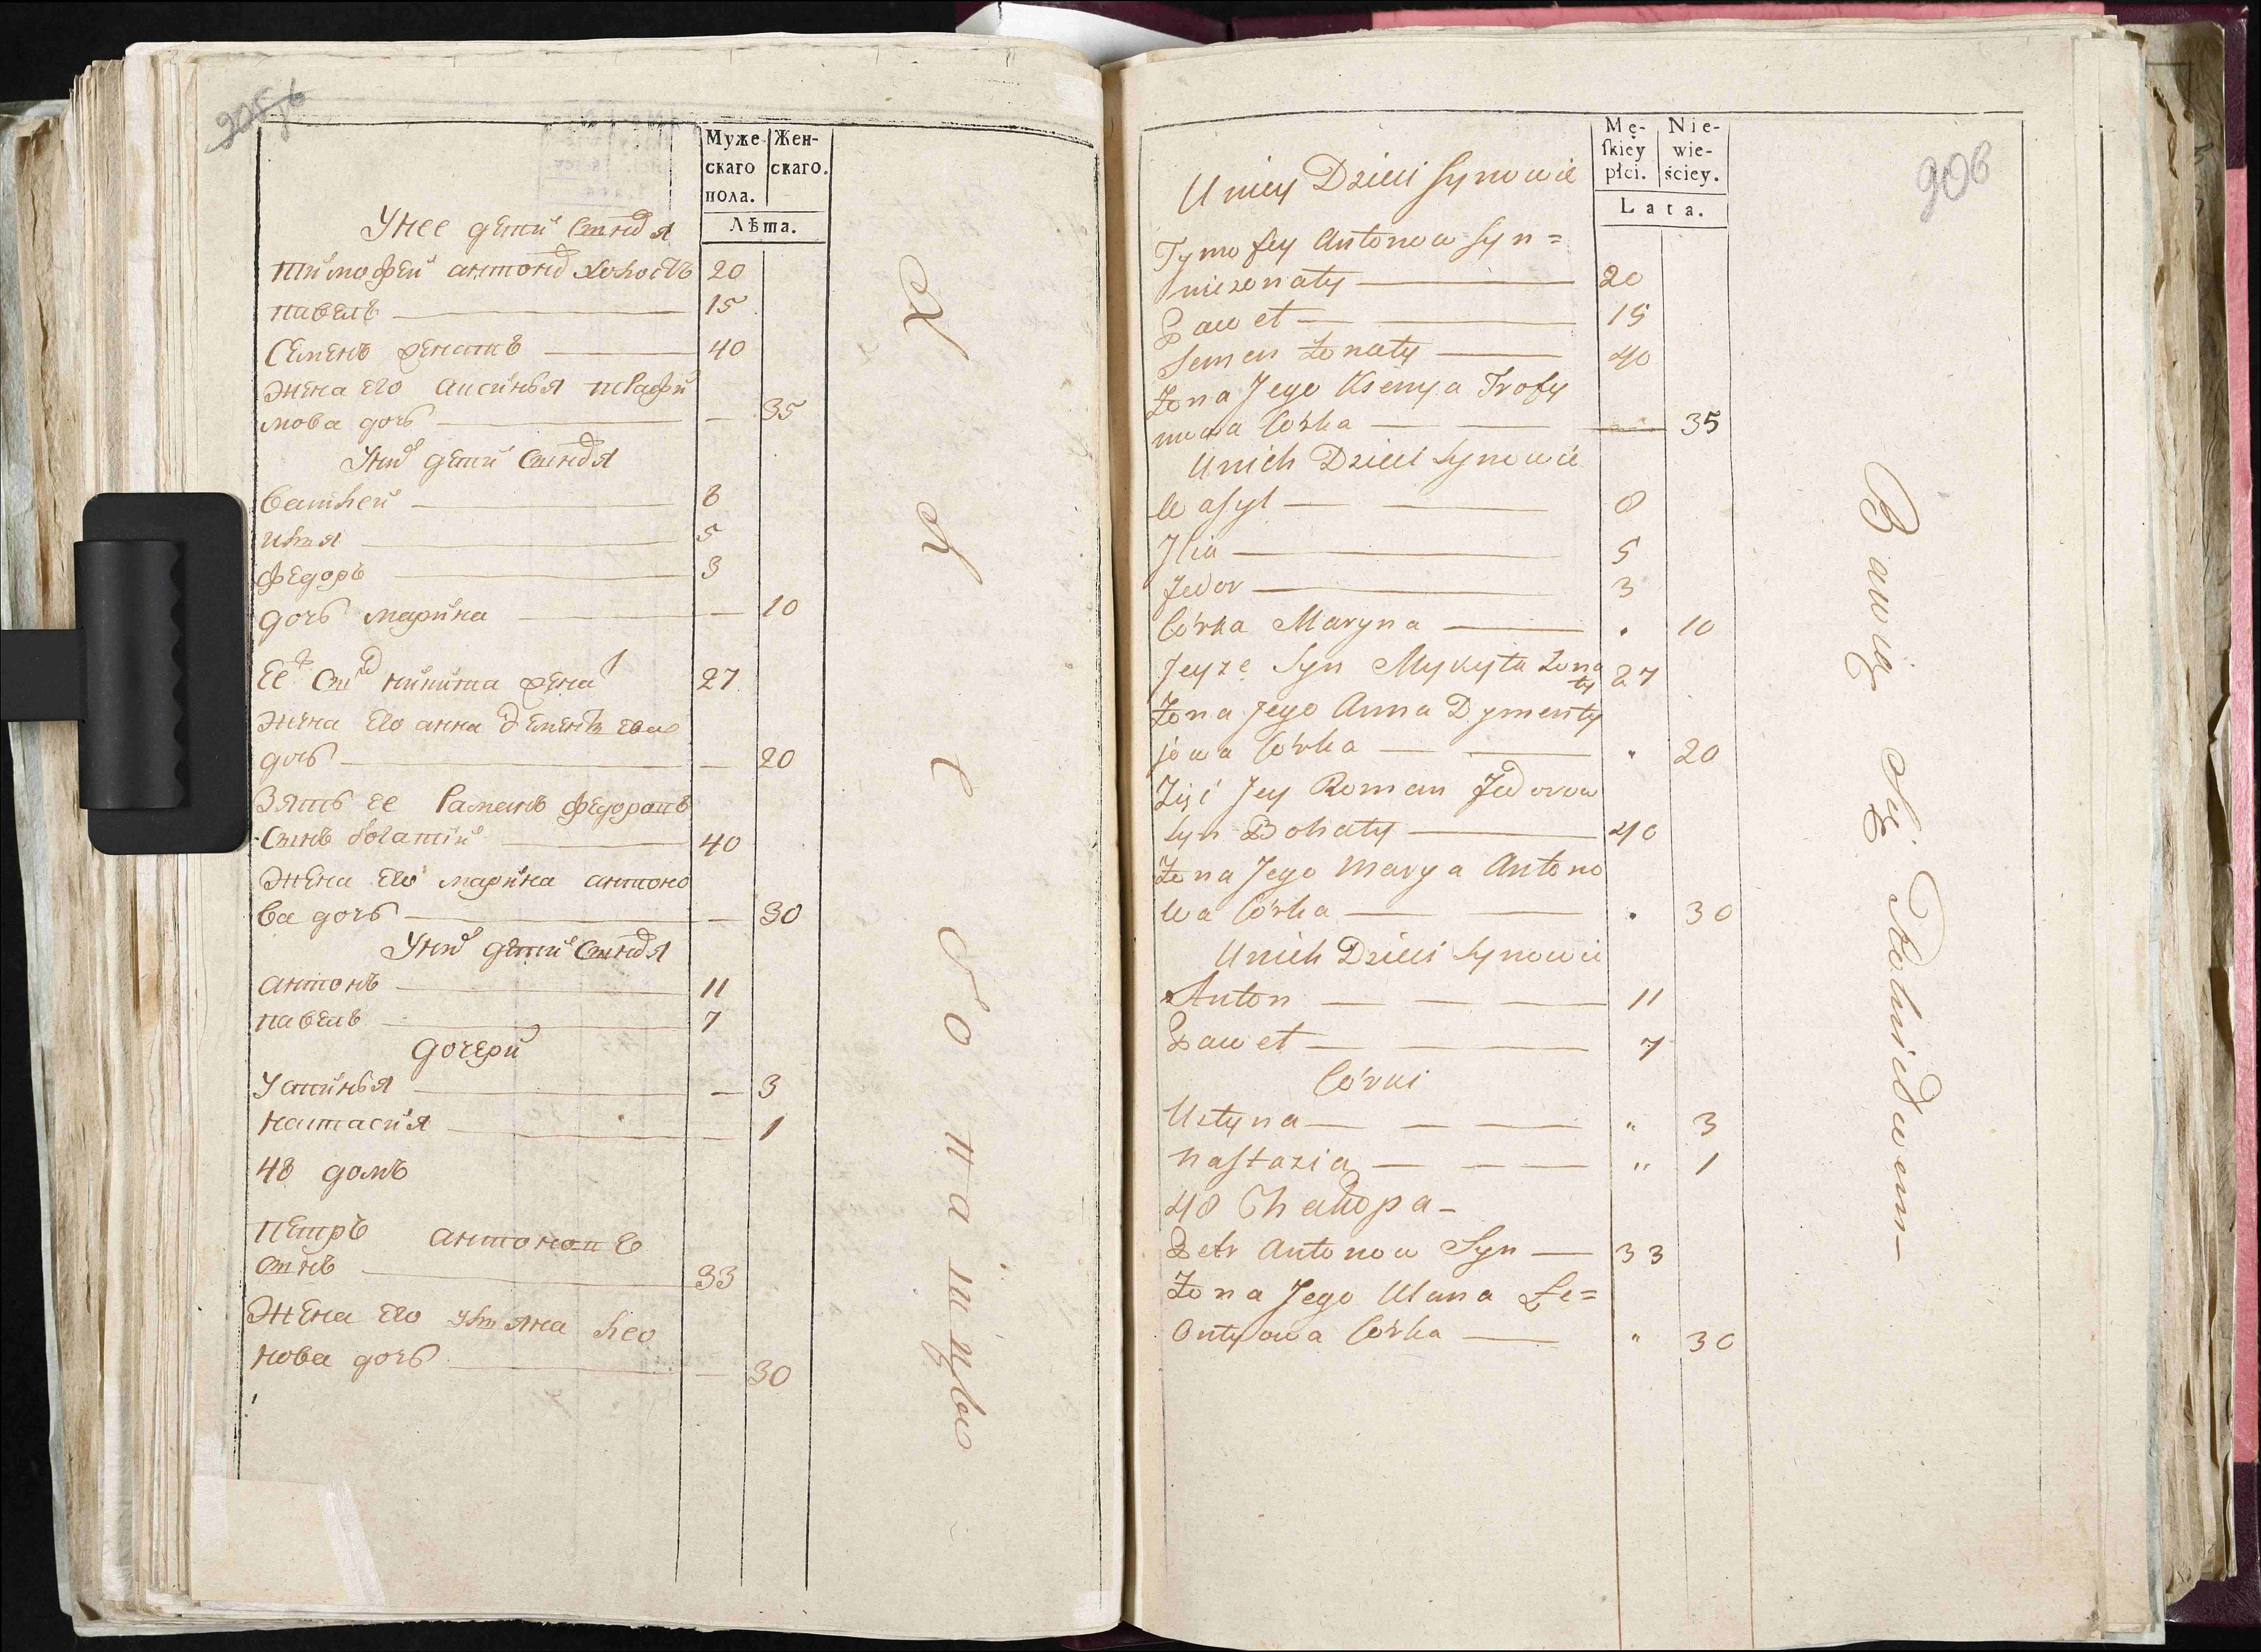 205об
Муже Жен-
скаго скаго.
пола.
Лѣта.
Унее дети Синовя
тимофей антонов холостъ 20
павелъ 15
Семенъ женатъ 40
жена его аксинья трафи
мова дочъ — 35
Уних дети Синовя
Василей 8
илья 5
федоръ 3
дочъ марина — 10
Ее Син никита жена 27
жена его анна дементьева
дочъ — 20
Зять ее Раманъ федоровъ
Синъ богатий 40
жена его марина антоно
ва дочъ — 30
Уних дети Синовя
антонъ 11
павелъ 7
дочери
Устинья — 3
настасия — 1
48 домъ
петръ антоновъ
Синъ 33
Жена его ульяна лео
нова дочъ — 30
Хлебопашцы
206
Mę- Nie-
ſkiéy wie-
płci. ściey.
Lata.
U niey Dzieci Synowie
Tymofiy Antonow Syn=
niezonaty 20
Paweł 15
Semen Żonaty 40
Żona Jego Ksenya Trofy
mowa Córka 35
U nich Dzieci Synowie
Wasyl 8
Jlia 5
Fedor 3
Córka Maryna " 10
Jeyze Syn Mykyta Żona
ty 27
Żona Jego Anna Dymenty
jowa Córka " 20
Zięć Jey Roman Fedorow
Syn Bohaty 40
Żona Jego Marya Antono
wa Córka " 30
U nich Dzieci Synowie
Anton 11
Paweł 7
Córki
Ustyna " 3
Nastazia " 1
48 Chałupa-
Petr Antonow Syn 33
Żona Jego Ulana Łe=
ontyowa Córka " 30
Bawią się Rolnictwem